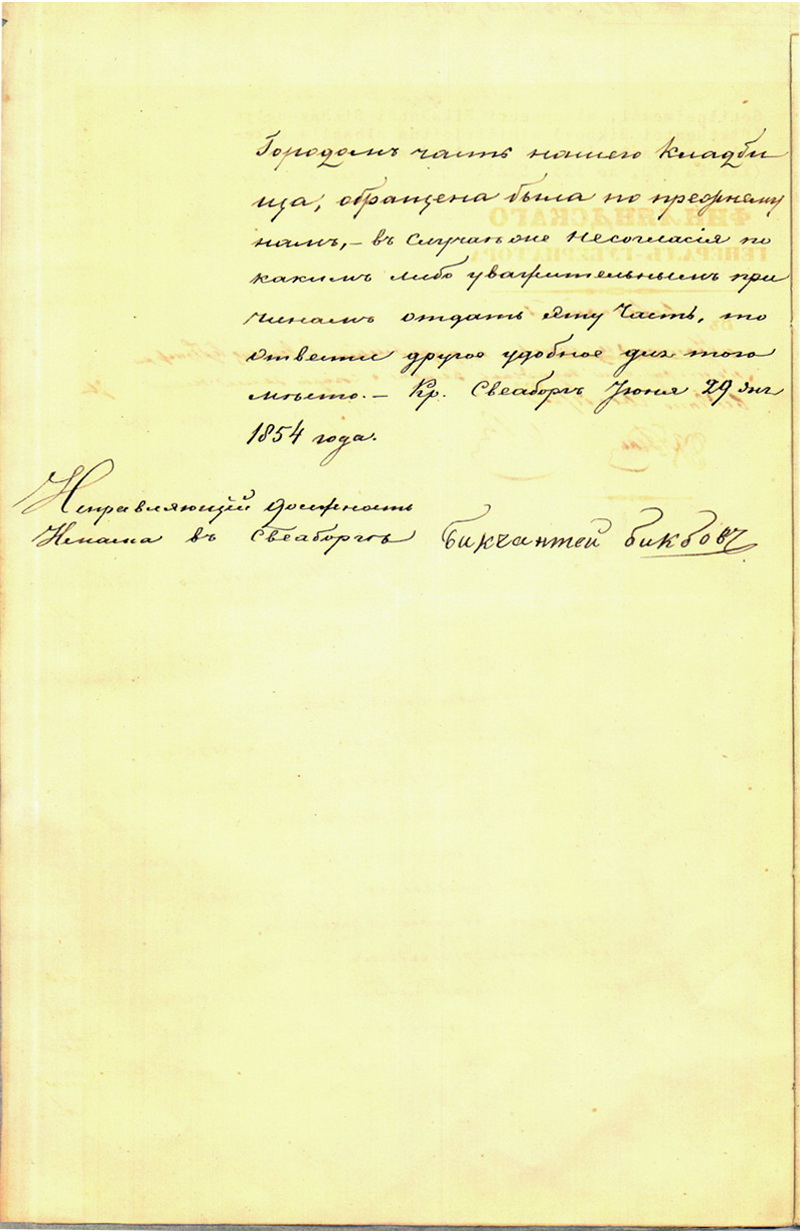 Городомъ часть нашего Кладби
ща, обращена была по прежнему
намъ, – въ случаѣ же несогласія по
какимъ либо уважительнымъ при
чинамъ отдать эту часть, то
отвести другое удобное для того
мѣсто. – Кр. Свеаборгъ Іюня 29 дня
1854 года.
Исправляющій должность
Имама въ Свеаборгѣ Бикчантей бикбовъ
ФИНЛЯНДСКАГО
ГЕНЕРАЛЪ-ГУБЕРНАТОРА